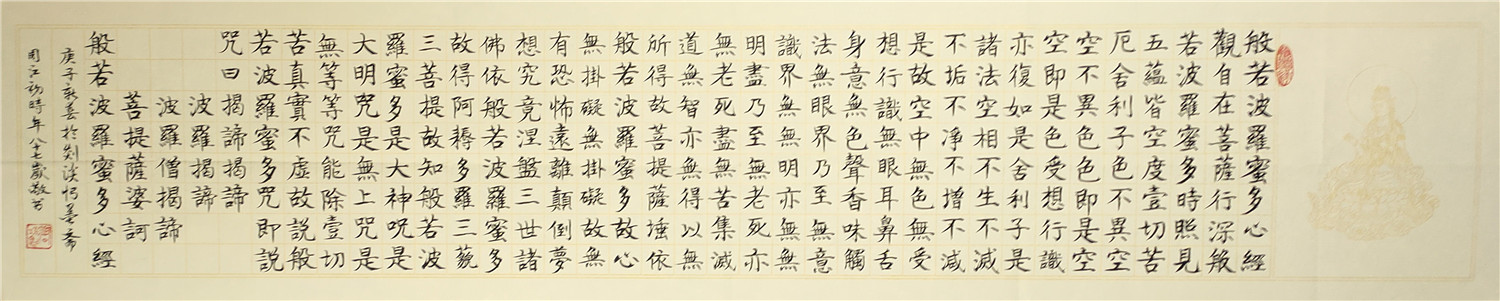 般若波羅蜜多心經
觀自在菩薩行深般
若波羅蜜多時照見
五蘊皆空度壹切苦
厄舍利子色不異空
空不異色色即是空
空即是色受想行識
亦復如是舍利子是
諸法空相不生不滅
不垢不净不增不减
是故空中無色無受
想行識無眼耳鼻舌
身意無色聲香味觸
法無眼界乃至無意
識界無無明亦無無
明盡乃至無老死亦
無老死盡無苦集滅
道無智亦無得以無
所得故菩提薩埵依
般若波羅蜜多故心
無掛礙無掛礙故無
有恐怖遠離顛倒夢
想究竟涅盤三世諸
佛依般若波羅蜜多
故得阿耨多羅三藐
三菩提故知般若波
羅蜜多是大神呪是
大明咒是無上咒是
無等等咒能除壹切
苦真實不虛故説般
若波羅蜜多咒即説
咒曰揭諦揭諦
波羅揭諦
波羅僧揭諦
菩提薩婆訶
般若波羅蜜多心經
庚子新春於剡溪墨齋
周江時年八十七歲敬書